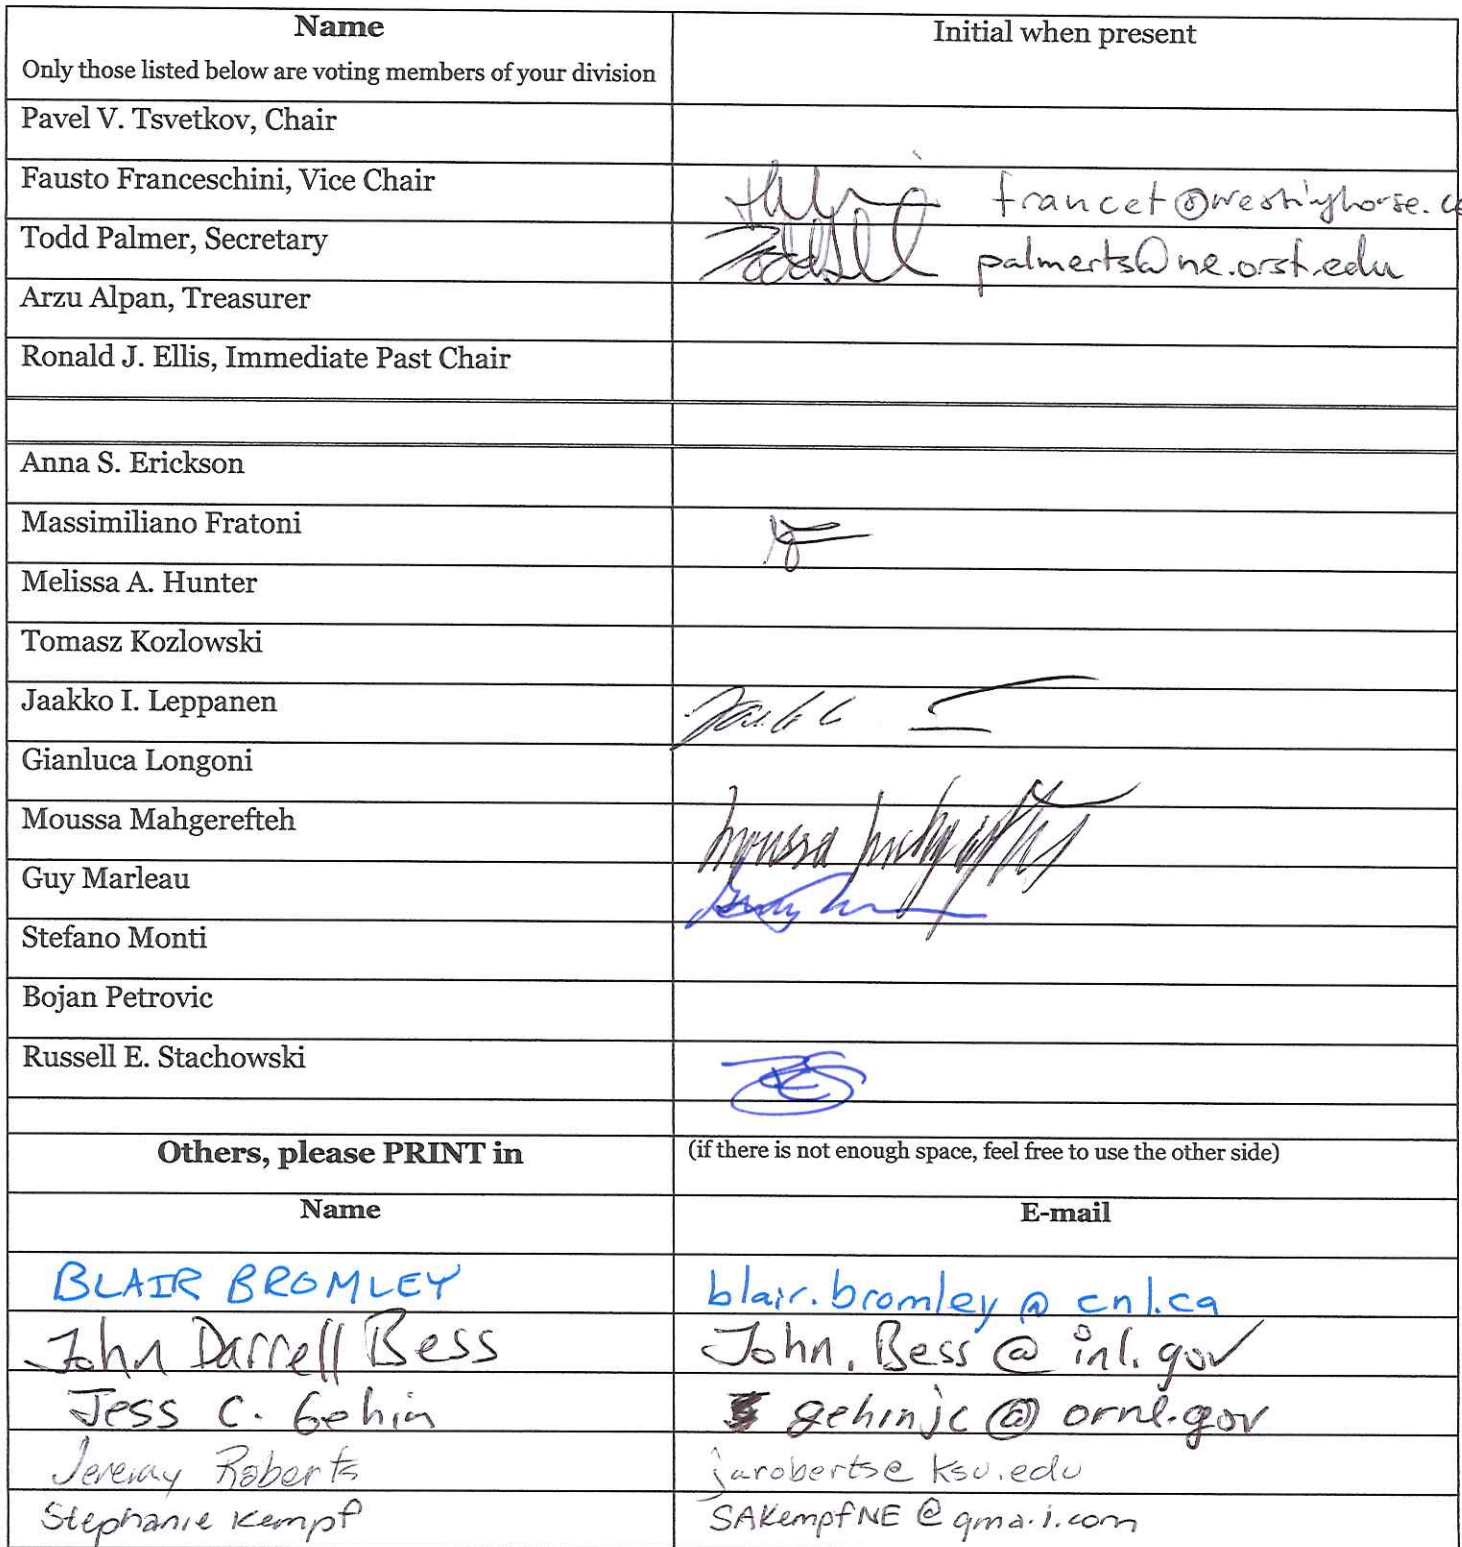 Name Initial when present
Only those listed below are voting members of your division
Pavel V. Tsvetkov, Chair
Fausto Franceschini, Vice Chair
Todd Palmer, Secretary palmerts@ne.orst.edu
Arzu Alpan, Treasurer
Ronald J. Ellis, Immediate Past Chair
Anna S. Erickson
Massimiliano Fratoni
Melissa A. Hunter
Tomasz Kozlowski
Jaakko I. Leppanen
Gianluca Longoni
Moussa Mahgerefteh Moussa
Guy Marleau
Stefano Monti
Bojan Petrovic
Russell E. Stachowski RES
Others, please PRINT in (if there is not enough space, feel free to use the other side)
Name E-mail
BLAIR BROMLEY blair.bromley@cnl.ca
John Darrell Bess John.Bess@inl.gov
Jess C. Gehin gehinjc@ornl.gov
Jeremy Roberts jaroberts@ksu.edu
Stephanie Kempf SAKempfNE@gmai.com